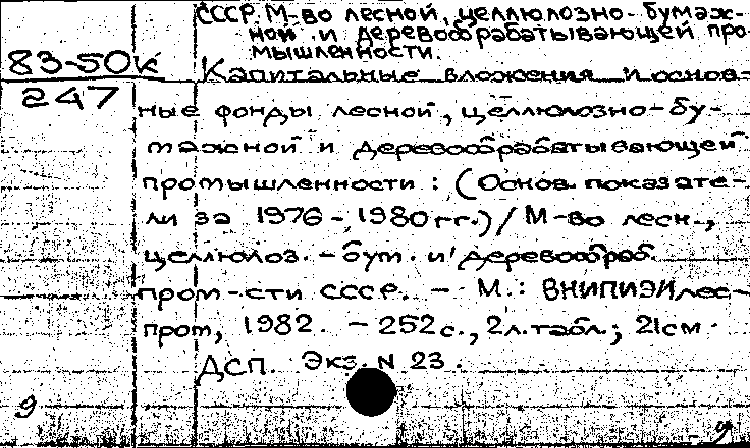 СССР. М-во лесной, целлюлозно-бумаж-
ной и деревообрабатывающей про-
мышленности.
83-50к
247
Капитальные вложения и основ-
ные фонды лесной, целлюлозно-бу-
мажной и деревообрабатывающей
промышленности: (Основ. показате-
ли за 1976-1980гг.) / М-во лесн.,
целлюлоз.-бум. и деревообраб.
пром-сти СССР. - М.: ВНИПИЭИлес-
пром, 1982. - 252с., 2л.табл.; 21см.
ДСП. Экз. N 23.
9